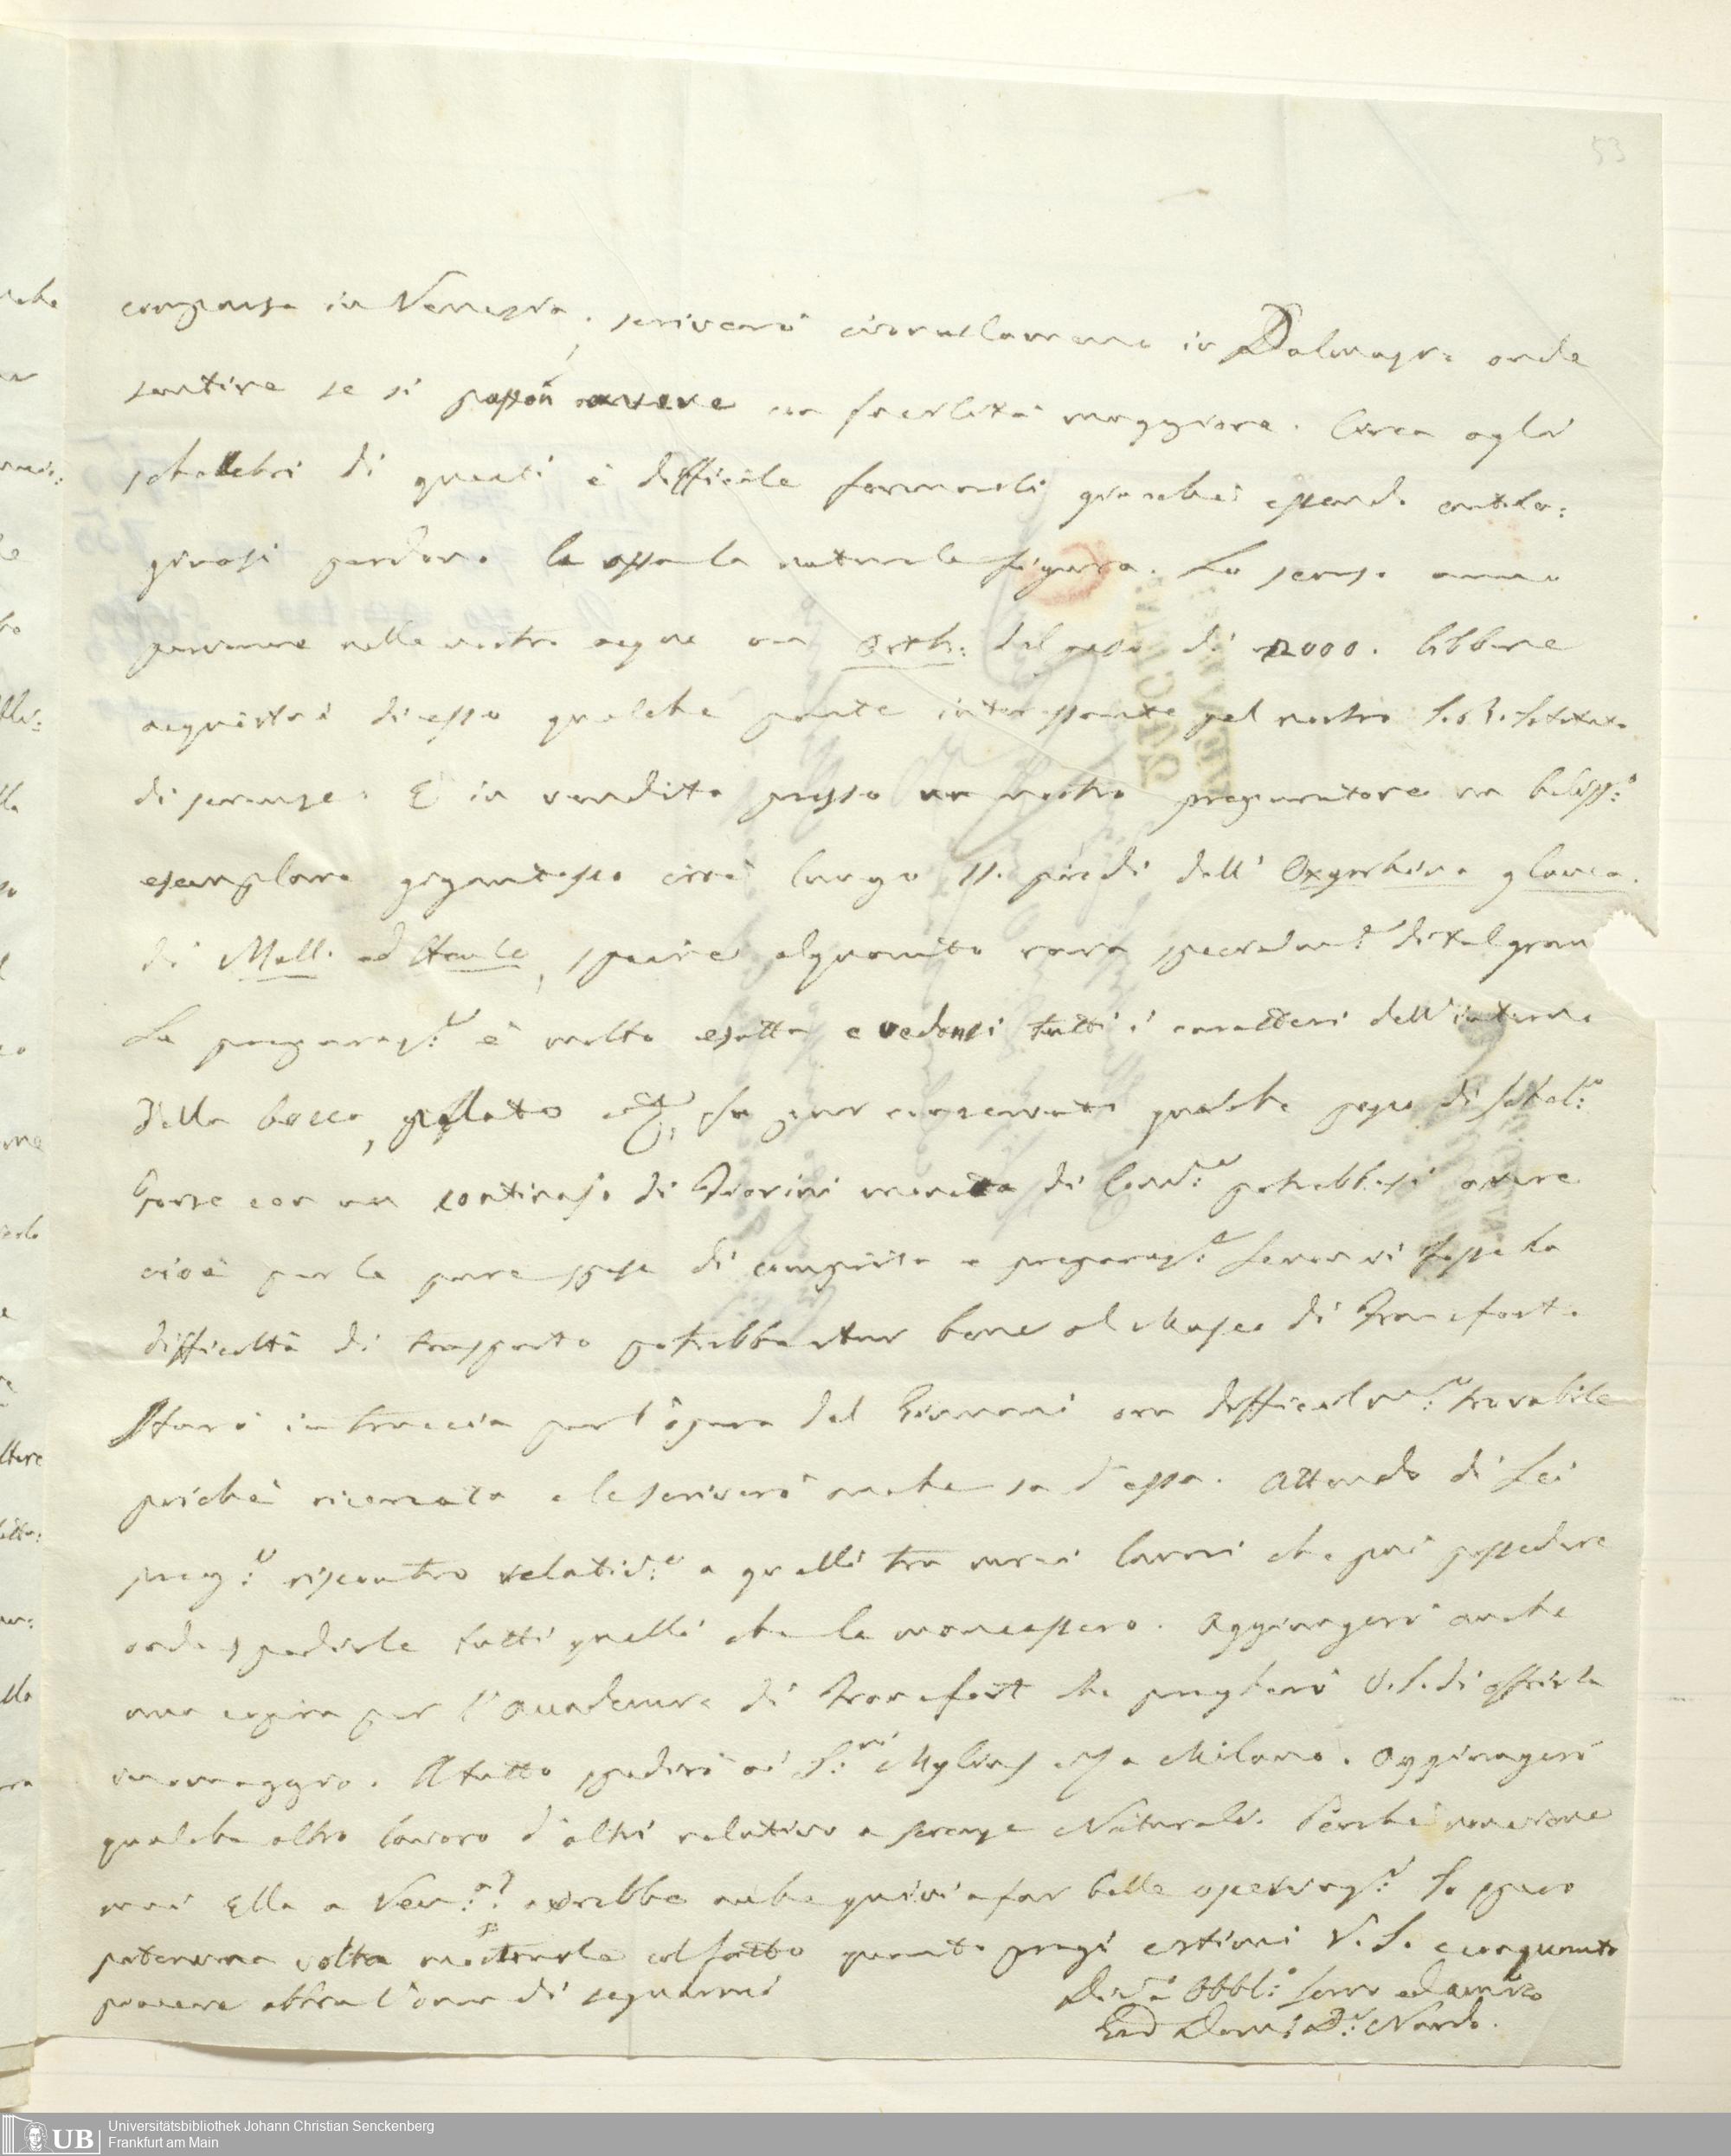 53
comparsa in Venezia, scriverò circolarmente in Dalmazia onde
sentire se si posson avere con facilità maggiore. Circa agli
scheletri di questi è difficile formarli giacchè essendo cartila:
ginosi perdono le ossa la naturale figura. Lo scorso anno
pervenne nelle nostre acque un Orth: del peso di 2000. libbre
acquistai di esso qualche parte interessante pel nostro I. R. Istituto
di scienze. È in vendita presso un nostro preparatore un beliss:o
esemplare gigantesco cioè lungo 11. piedi dell' Oxyrhina glauca.
di Mull. ed Henle, specie alquanto rara specialm:e di tal gran
La preparaz:e è molto esatta e vedonsi tutti i caratteri dell'interno
della bocca, palato ecc; fu pur conservato qualche pezzo di schel:o
Forse con un centinajo di Fiorini moneta di Conv:e potrebbesi avere
cioè per le pure spese di comprita e preparaz:e se non vi fosse la
difficoltà di trasporto potrebbe star bene al Museo di Francfort.
Starò in traccia per l'opera del Ginnani ora difficilm:e trovabile
poichè ricercata e le scriverò anche su d'essa. Attendo di Lei
preg:o riscontro relativ:e a quelli tra miei lavori che può possedere
onde spedirle tutti quelli che le mancassero. Aggiungerò anche
una copia per l'Accademia di Francfort che pregherò V. S. di offrirla
in omaggio. Il tutto spedirò ai S:ri Mylius a Milano. Aggiungerò
qualche altro lavoro d'altri relativo a scienze Naturali. Perchè non viene
mai Ella a Ven:a? avrebbe anche quivi a far belle osservaz:i Io spero
poter una volta mostrarle col fatto quanto pregi e stimi V. S. e con quanto
piacere abbia l'onor di segnarmi
Dev:o Obbl:o servo ed amico
Gio Domi D:r Nardo.
Universitätsbibliothek Johann Christian Senckenberg
Frankfurt am Main
UB